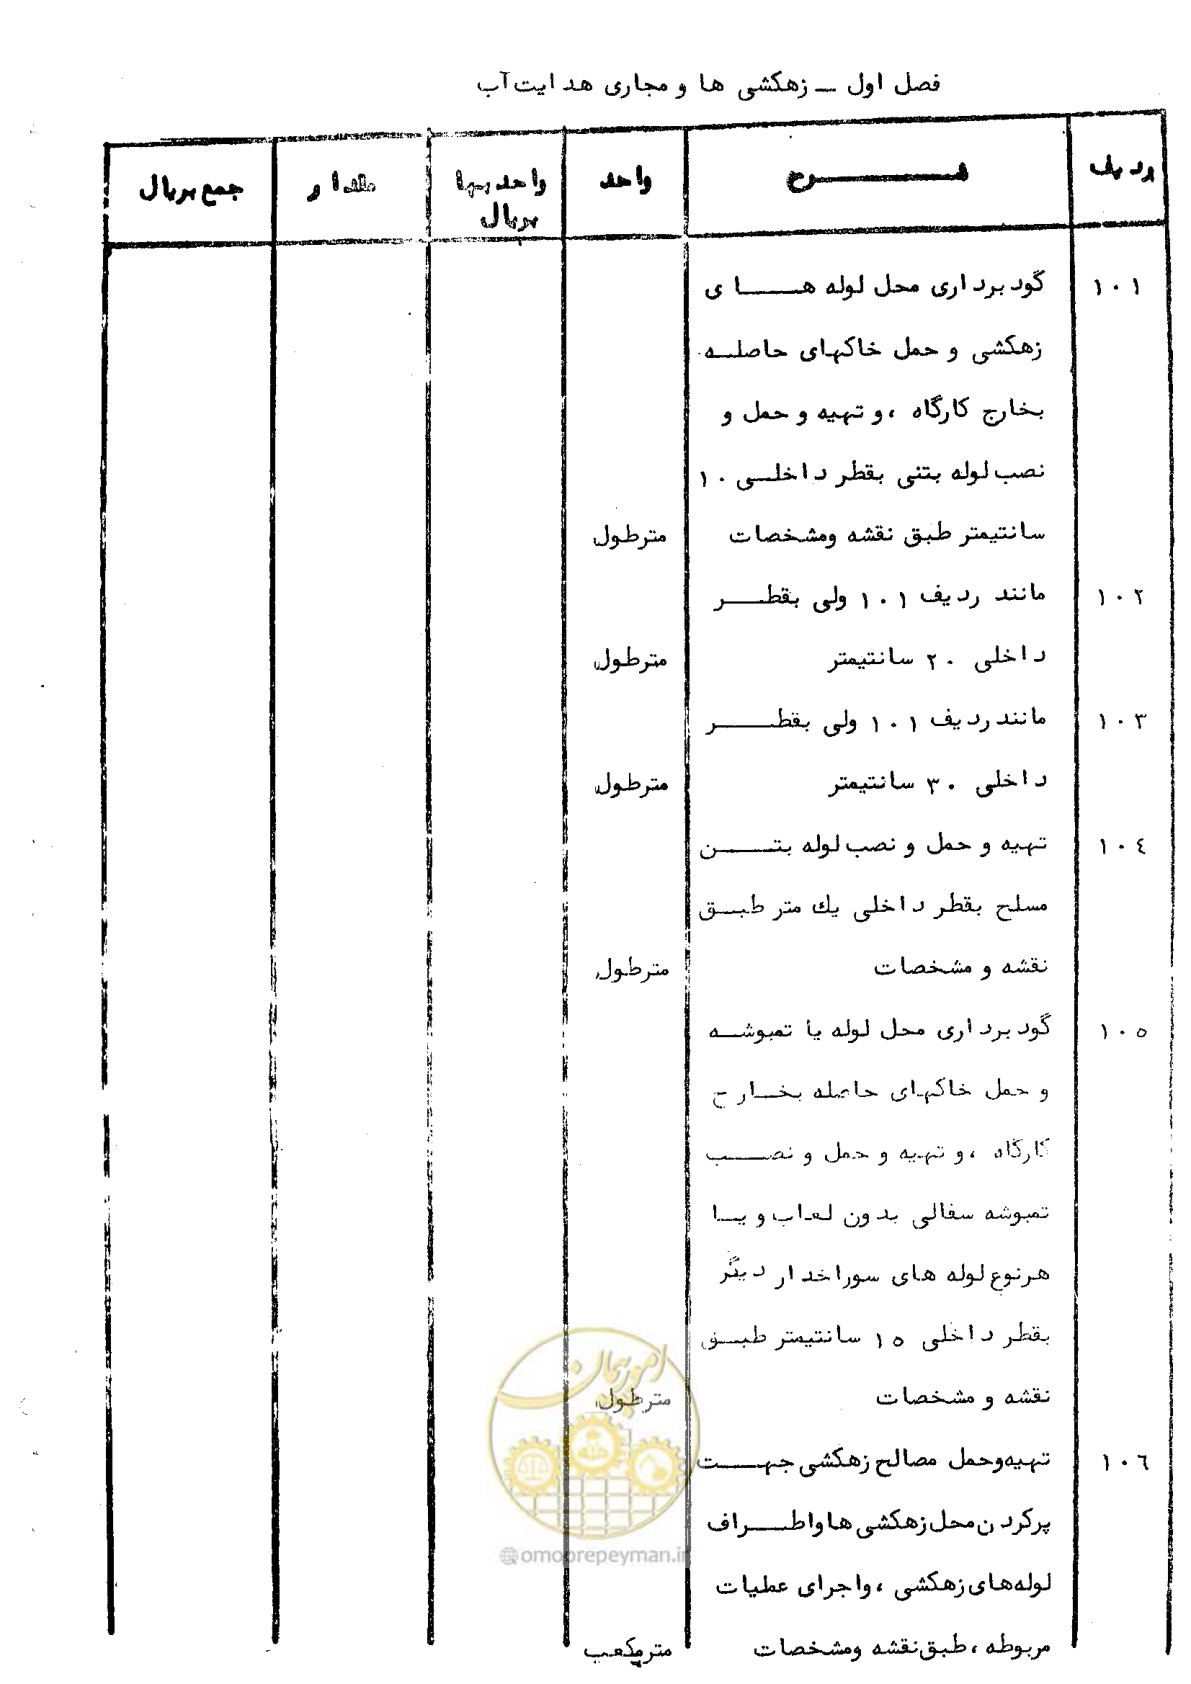 فصل اول ـ زهکشی ها و مجاری هدایت آب
ردیف شرح واحد واحد بها بریال مقدار جمع بریال
۱۰۱ گود برداری محل لوله هـــای
زهکشی و حمل خاکهای حاصلــه
بخارج کارگاه ، و تهیه و حمل و
نصب لوله بتنی بقطر داخلــی ۱۰
سانتیمتر طبق نقشه ومشخصات مترطول
۱۰۲ مانند ردیف ۱۰۱ ولی بقطـــر
داخلی ۲۰ سانتیمتر مترطول
۱۰۳ مانند ردیف ۱۰۱ ولی بقطـــر
داخلی ۳۰ سانتیمتر مترطول
۱۰٤ تهیه و حمل و نصب لوله بتـــن
مسلح بقطر داخلی یك متر طبــق
نقشه و مشخصات مترطول
۱۰۵ گود برداری محل لوله یا تمبوشــه
و حمل خاکهای حاصله بخــارج
کارگاه ، و تهیه و حمل و نصـــب
تمبوشه سفالی بدون لعاب و یــا
هرنوع لوله های سوراخدار دیگر
بقطر داخلی ۱۵ سانتیمتر طبــق
نقشه و مشخصات مترطول
۱۰٦ تهیه وحمل مصالح زهکشی جهـــت
پرکردن محل زهکشی ها واطـــراف
لوله های زهکشی ، واجرای عملیات
مربوطه ، طبق نقشه ومشخصات مترمکعب
امور پیمان
@omoorepeyman.ir